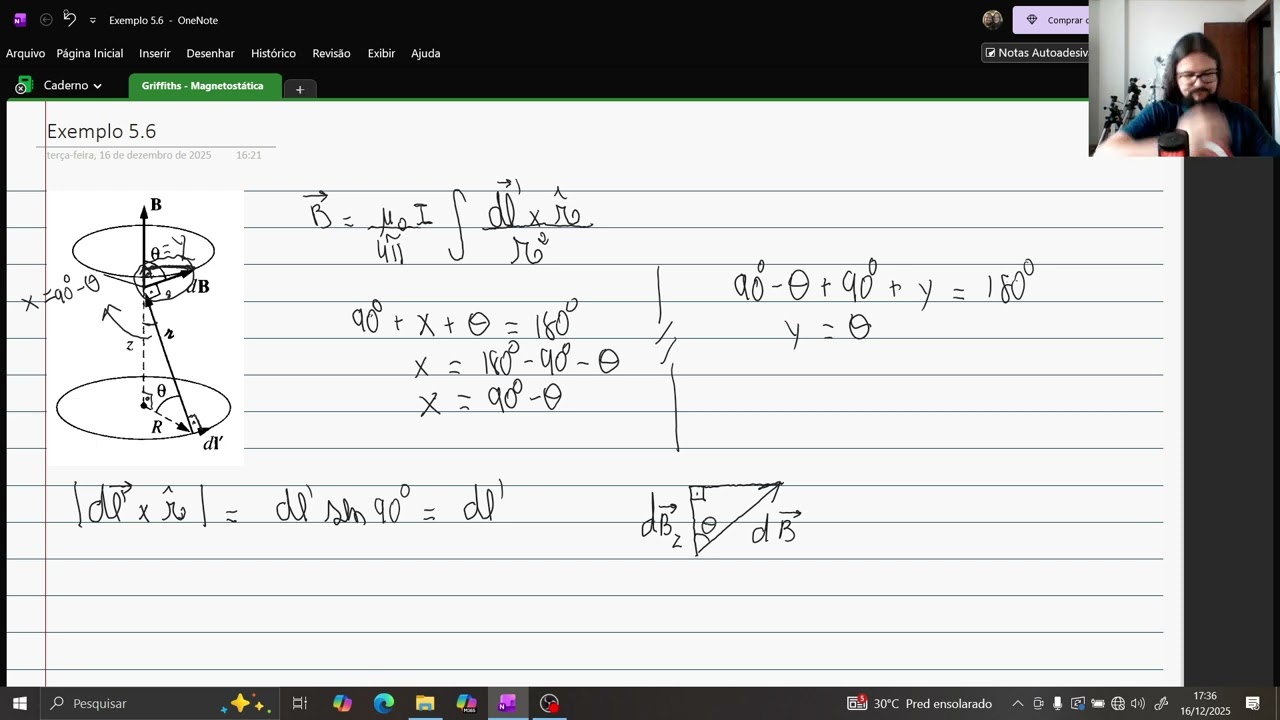 Exemplo 5.6 - OneNote
Comprar c
Arquivo Página Inicial Inserir Desenhar Histórico Revisão Exibir Ajuda
Notas Autoadesiv
Caderno
Griffiths - Magnetostática
+
Exemplo 5.6
terça-feira, 16 de dezembro de 2025 16:21
B
θ = y
dB
x = 90° - θ
z
r
θ
R
dl'
B = μ₀ I / 4π ∫ dl' × r̂ / r²
90° + x + θ = 180°
x = 180° - 90° - θ
x = 90° - θ
90° - θ + 90° + y = 180°
y = θ
|dl' × r̂| = dl' sen 90° = dl'
dB_z θ dB
Pesquisar
30°C Pred ensolarado
17:36
16/12/2025